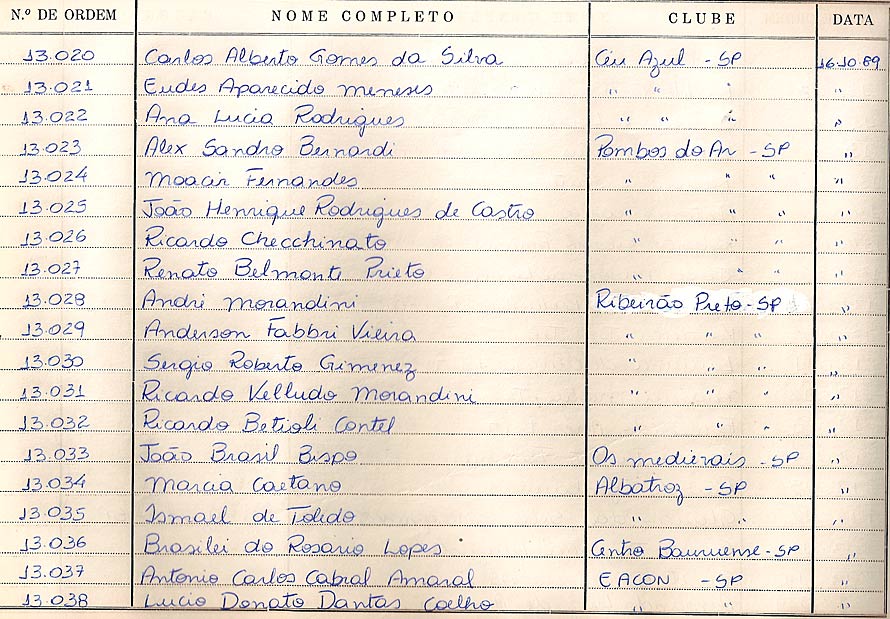 N.º DE ORDEM NOME COMPLETO CLUBE DATA
13.020 Carlos Alberto Gomes da Silva Céu Azul - SP 16.10.89
13.021 Eudes Aparecido Meneses " " " "
13.022 Ana Lucia Rodrigues " " " "
13.023 Alex Sandro Bernardi Pombos do Ar - SP "
13.024 Moacir Fernandes " " " "
13.025 João Henrique Rodrigues de Castro " " " "
13.026 Ricardo Checchinato " " " "
13.027 Renato Belmonte Prieto " " " "
13.028 André Morandini Ribeirão Preto - SP "
13.029 Anderson Fabbri Vieira " " " "
13.030 Sergio Roberto Gimenez " " " "
13.031 Ricardo Velludo Morandini " " " "
13.032 Ricardo Betioli Contel " " " "
13.033 João Brasil Bispo Os medievais - SP "
13.034 Marcia Caetano Albatroz - SP "
13.035 Ismael de Toledo " " "
13.036 Brasilei do Rosario Lopes Centro Bauruense - SP "
13.037 Antonio Carlos Cabral Amaral EACON - SP "
13.038 Lucio Donato Dantas Coelho " " "